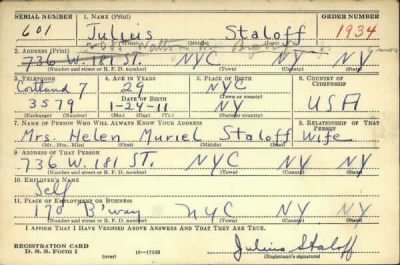 SERIAL NUMBER 1. NAME (Print) ORDER NUMBER
601 Julius Staloff 1934
2. ADDRESS (Print)
736 W. 181 ST. NYC NY
(Number and street or R. F. D. number) (Town) (County) (State)
3. TELEPHONE 4. AGE IN YEARS 5. PLACE OF BIRTH 6. COUNTRY OF CITIZENSHIP
Cortland 7 29 NYC
DATE OF BIRTH (Town or county)
3579 1-24-11 NY USA
(Exchange) (Number) (Mo.) (Day) (Yr.) (State or country)
7. NAME OF PERSON WHO WILL ALWAYS KNOW YOUR ADDRESS 8. RELATIONSHIP OF THAT PERSON
Mrs. Helen Muriel Staloff Wife
(Mr., Mrs., Miss) (First) (Middle) (Last)
9. ADDRESS OF THAT PERSON
736 W. 181 ST. NYC NY NY
(Number and street or R. F. D. number) (Town) (County) (State)
10. EMPLOYER'S NAME
Self
11. PLACE OF EMPLOYMENT OR BUSINESS
170 B'way NYC NY NY
(Number and street or R. F. D. number) (Town) (County) (State)
I AFFIRM THAT I HAVE VERIFIED ABOVE ANSWERS AND THAT THEY ARE TRUE.
REGISTRATION CARD
D. S. S. Form 1 (over) 16—17105 Julius Staloff
(Registrant's signature)